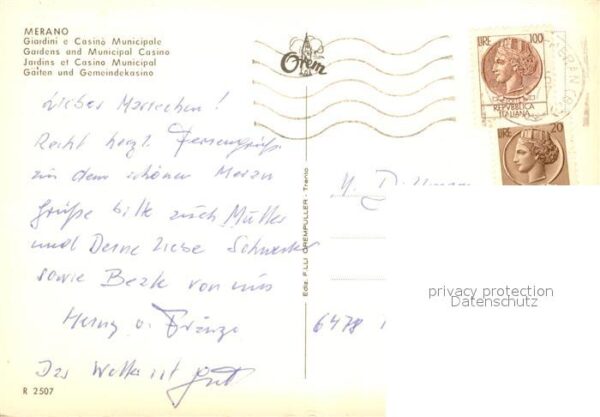 MERANO
Giardini e Casinò Municipale
Gardens and Municipal Casino
Jardins et Casino Municipal
Gärten und Gemeindekasino
Orem
LIRE 100
REPVBBLICA
ITALIANA
LIRE 20
Lieber Mariechen!
Recht herzl. Feriengrüße
aus dem schönen Meran
Grüße bitte auch Mutter
und Deine liebe Schwester
sowie von uns
Das Wetter ist gut
R 2507
Ediz. F.LLI OREMPULLER - Trento
6478
privacy protection
Datenschutz